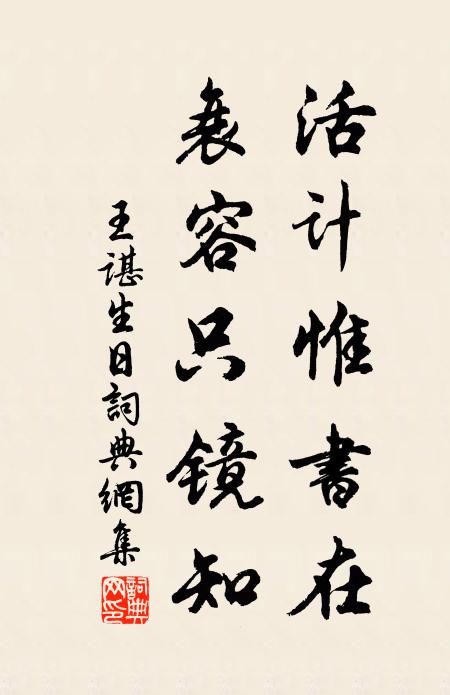 活计惟書在
衰容只镜知
王諶生日詞典網集
詞典网印